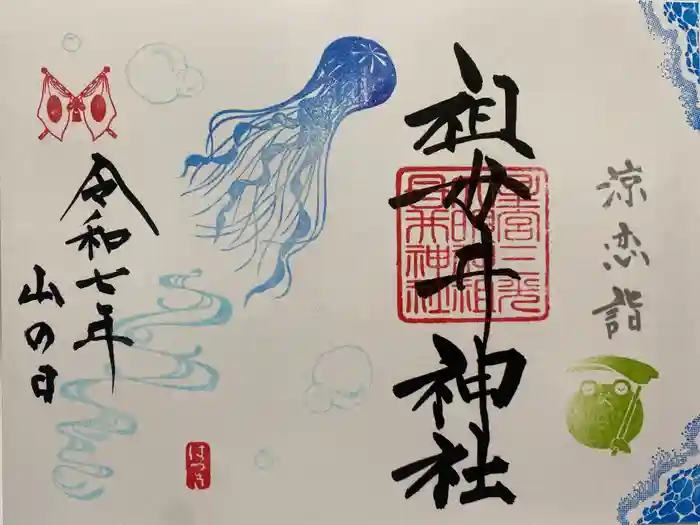 涼恋詣
祖母井神社
令和七年
山の日
はづき